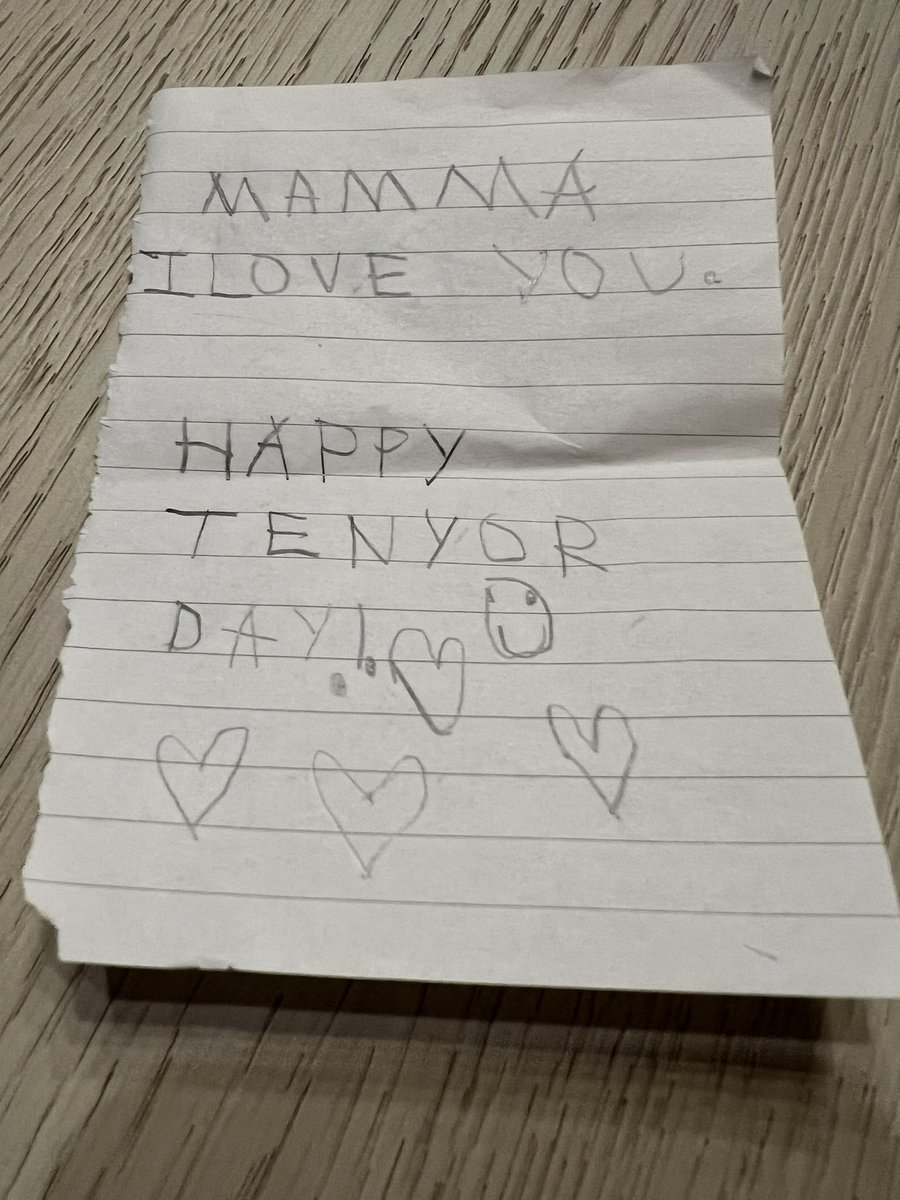 MAMMA
I LOVE YOU.
HAPPY
TENYOR
DAY!